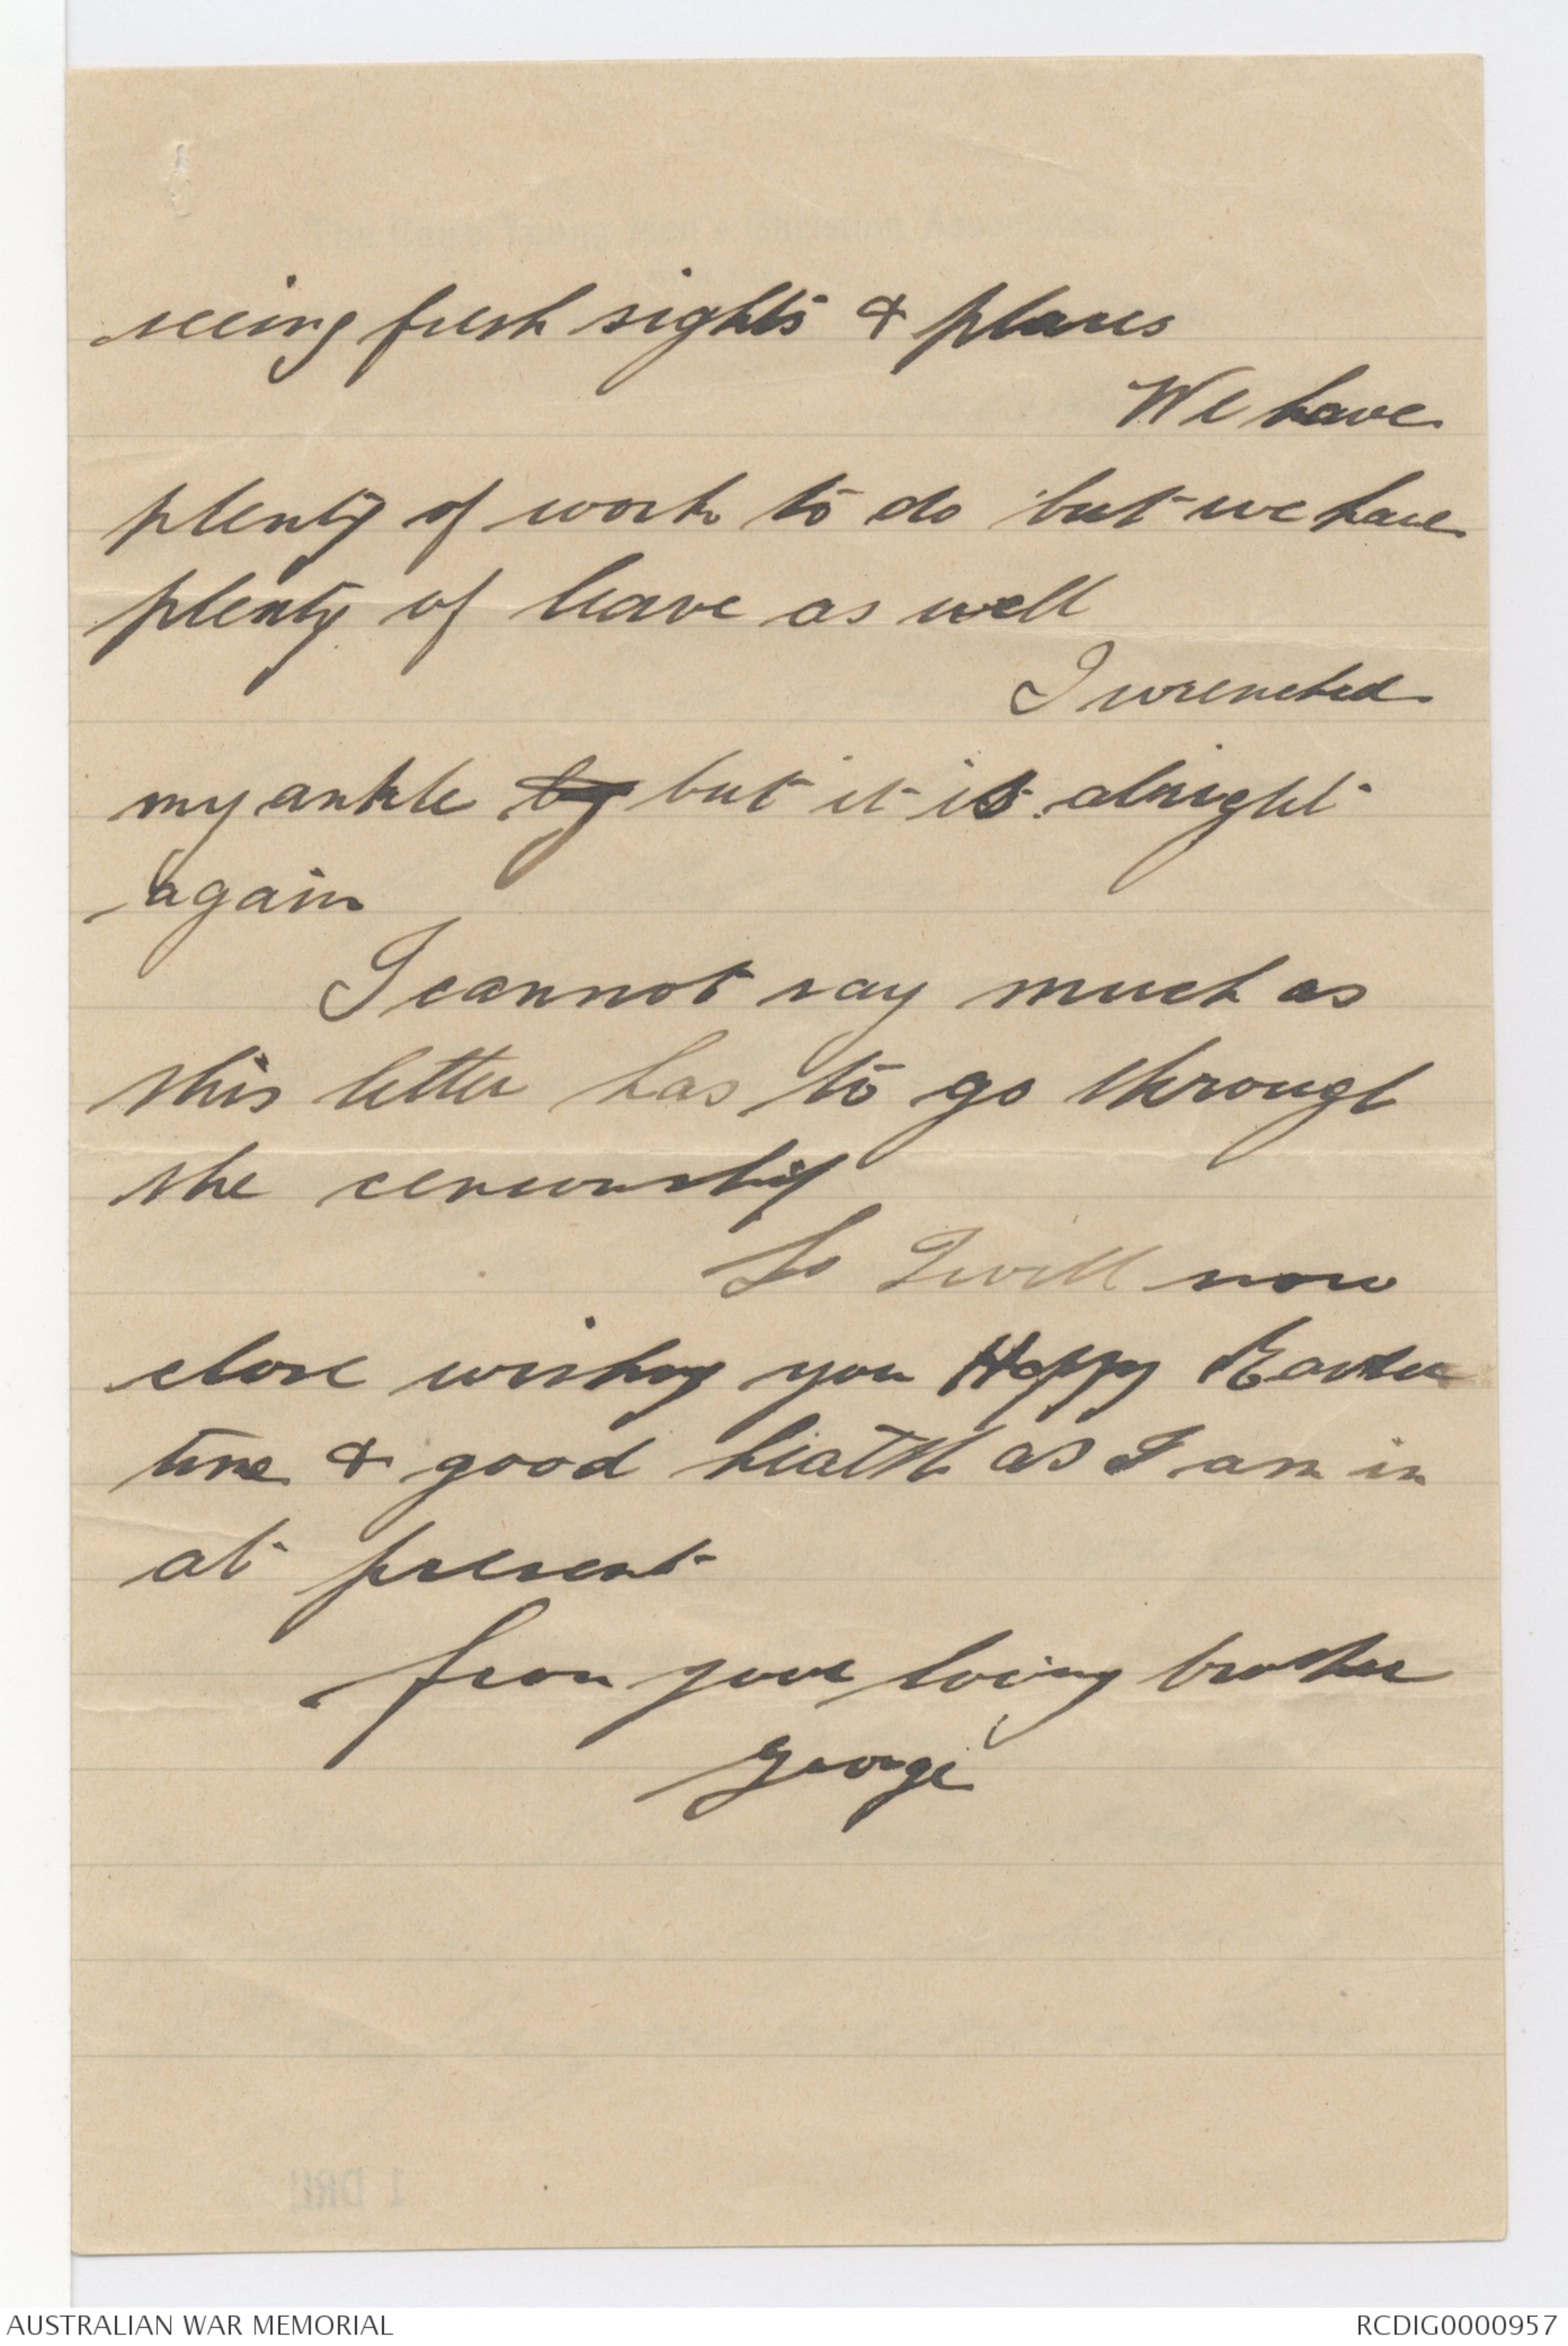 seeing fresh sights & places
We have
plenty of work to do but we have
plenty of leave as well
I wrenched
my ankle by but it is alright
again
I cannot say much as
this letter has to go through
the censorship
So I will now
close wishing you Happy Easter
time & good health as I am in
at present
from your loving brother
George
1 DRL
AUSTRALIAN WAR MEMORIAL
RCDIG0000957